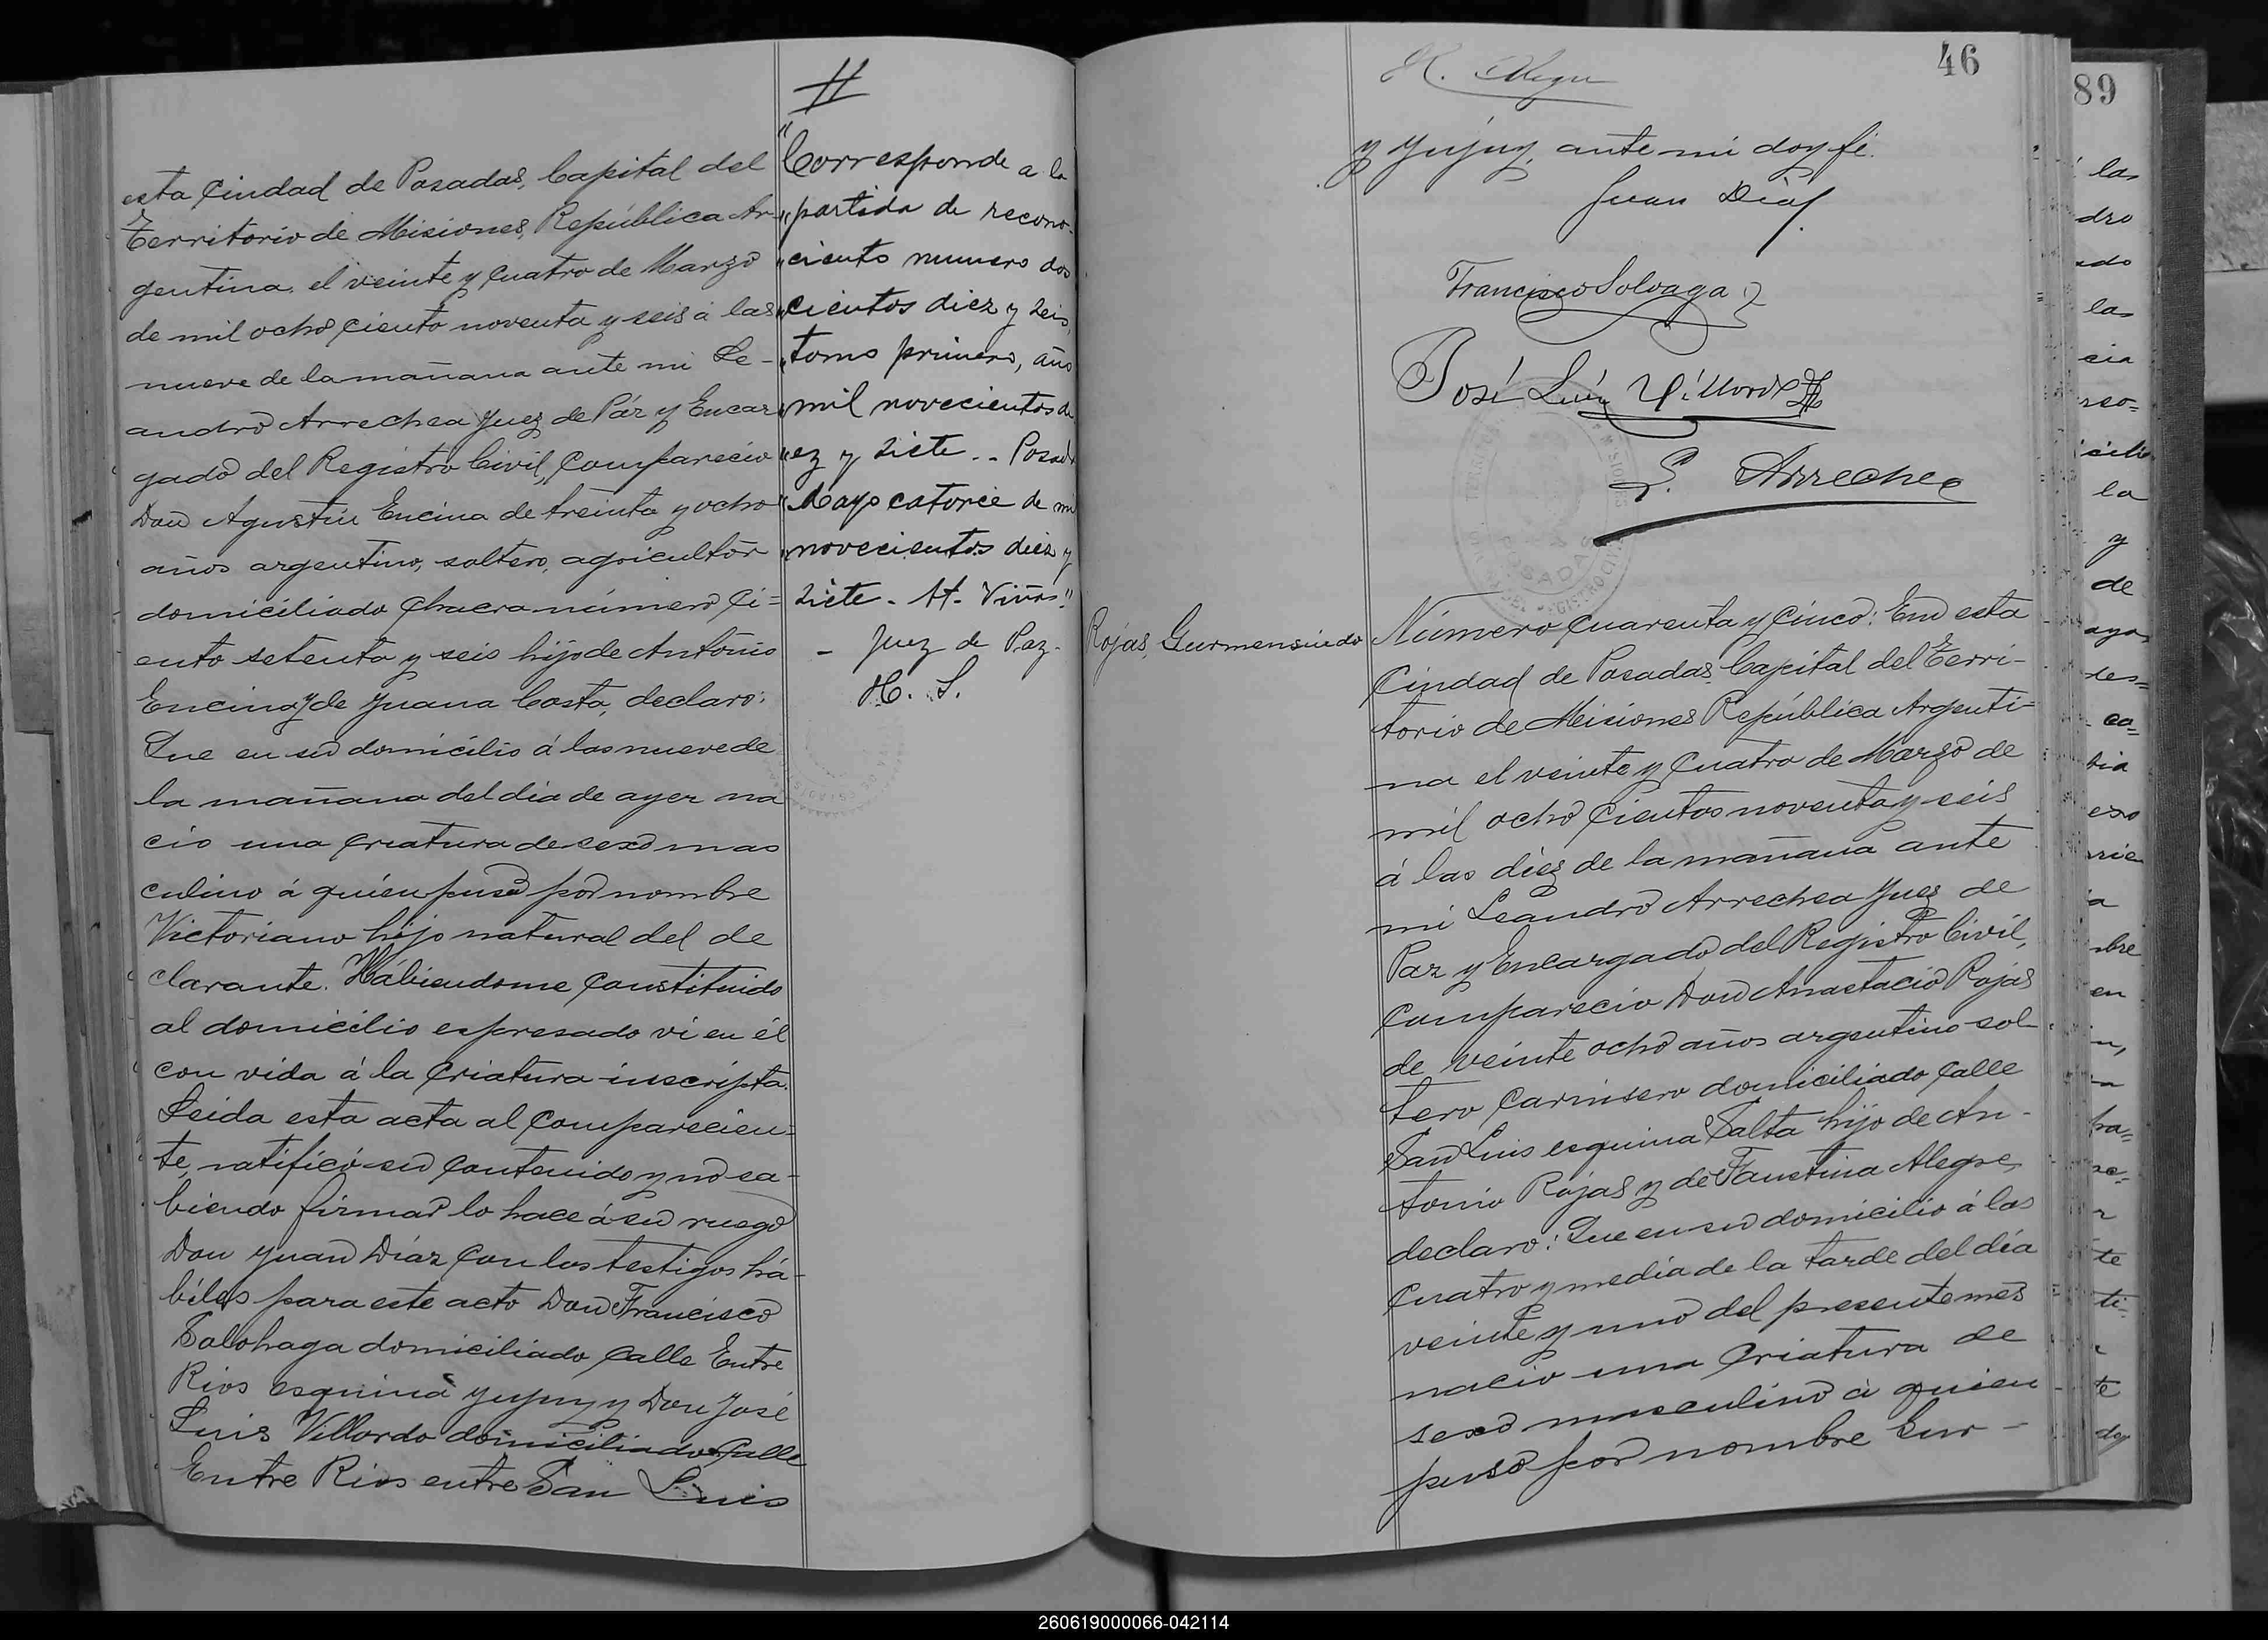 esta Ciudad de Posadas, Capital del
Territorio de Misiones, República Ar-
gentina, el veinte y cuatro de Marzo
de mil ocho ciento noventa y seis á las
nueve de la mañana ante mi Le-
andro Arrechea Juez de Páz y Encar
gado del Registro Civil, Comparecio
Don Agustin Encina de treinta y ocho
años argentino, soltero, agricultor
domiciliado Chacra número Ci=
ento setenta y seis hijo de Antonio
Encina y de Juana Costa, declaro:
Que en su domicilio á las nueve de
la mañana del dia de ayer na
cio una Criatura de sexo mas
culino á quien puso por nombre
Victoriano hijo natural del de
clarante. Habiendome Constituido
al domicilio espresado vi en él
con vida á la Criatura inscripta.
Leida esta acta al Comparecien=
te, ratificó su Contenido y no sa-
biendo firmar lo hace á su ruego
Don Juan Díaz Con los testigos há-
biles para este acto Don Francisco
Salohaga domiciliado Calle Entre
Rios esquina Yujuy y Don José
Luis Villordo domiciliado Calle
Entre Rios entre San Luis
#
"Corresponde a la
"partida de recono-
"ciento numero dos
"cientos diez y seis,
"tomo primero, año
"mil novecientos di
"ez y siete.. Posad
"Mayo catorce de mil
"novecientos diez y
siete - At. Viñas"
- Juez de Paz -
H. S.
46
y Yujuy, ante mi doy fé.
Juan Diaz
Francisco Solvaga
José Luis Villordo
L. Arrechea
Rojas, Gurmensindo
Número Cuarenta y Cinco: En esta
Ciudad de Posadas, Capital del Terri-
torio de Misiones República Argenti=
na el veinte y Cuatro de Marzo de
mil ocho Cientos noventa y seis
á las diez de la mañana ante
mi Leandro Arrechea Juez de
Paz y Encargado del Registro Civil,
Comparecio Don Anastacio Rojas
de veinte ocho años argentino sol-
tero Carnisero domiciliado Calle
San Luis esquina Salta hijo de An-
tonio Rojas y de Faustina Alegre,
declaro: Que en su domicilio á las
Cuatro y media de la tarde del día
veinte y uno del presente mes
nacio una Criatura de
sexo masculino á quien
puso por nombre Gur-
89
las
dro
ado
las
cia
la
y
de
260619000066-042114